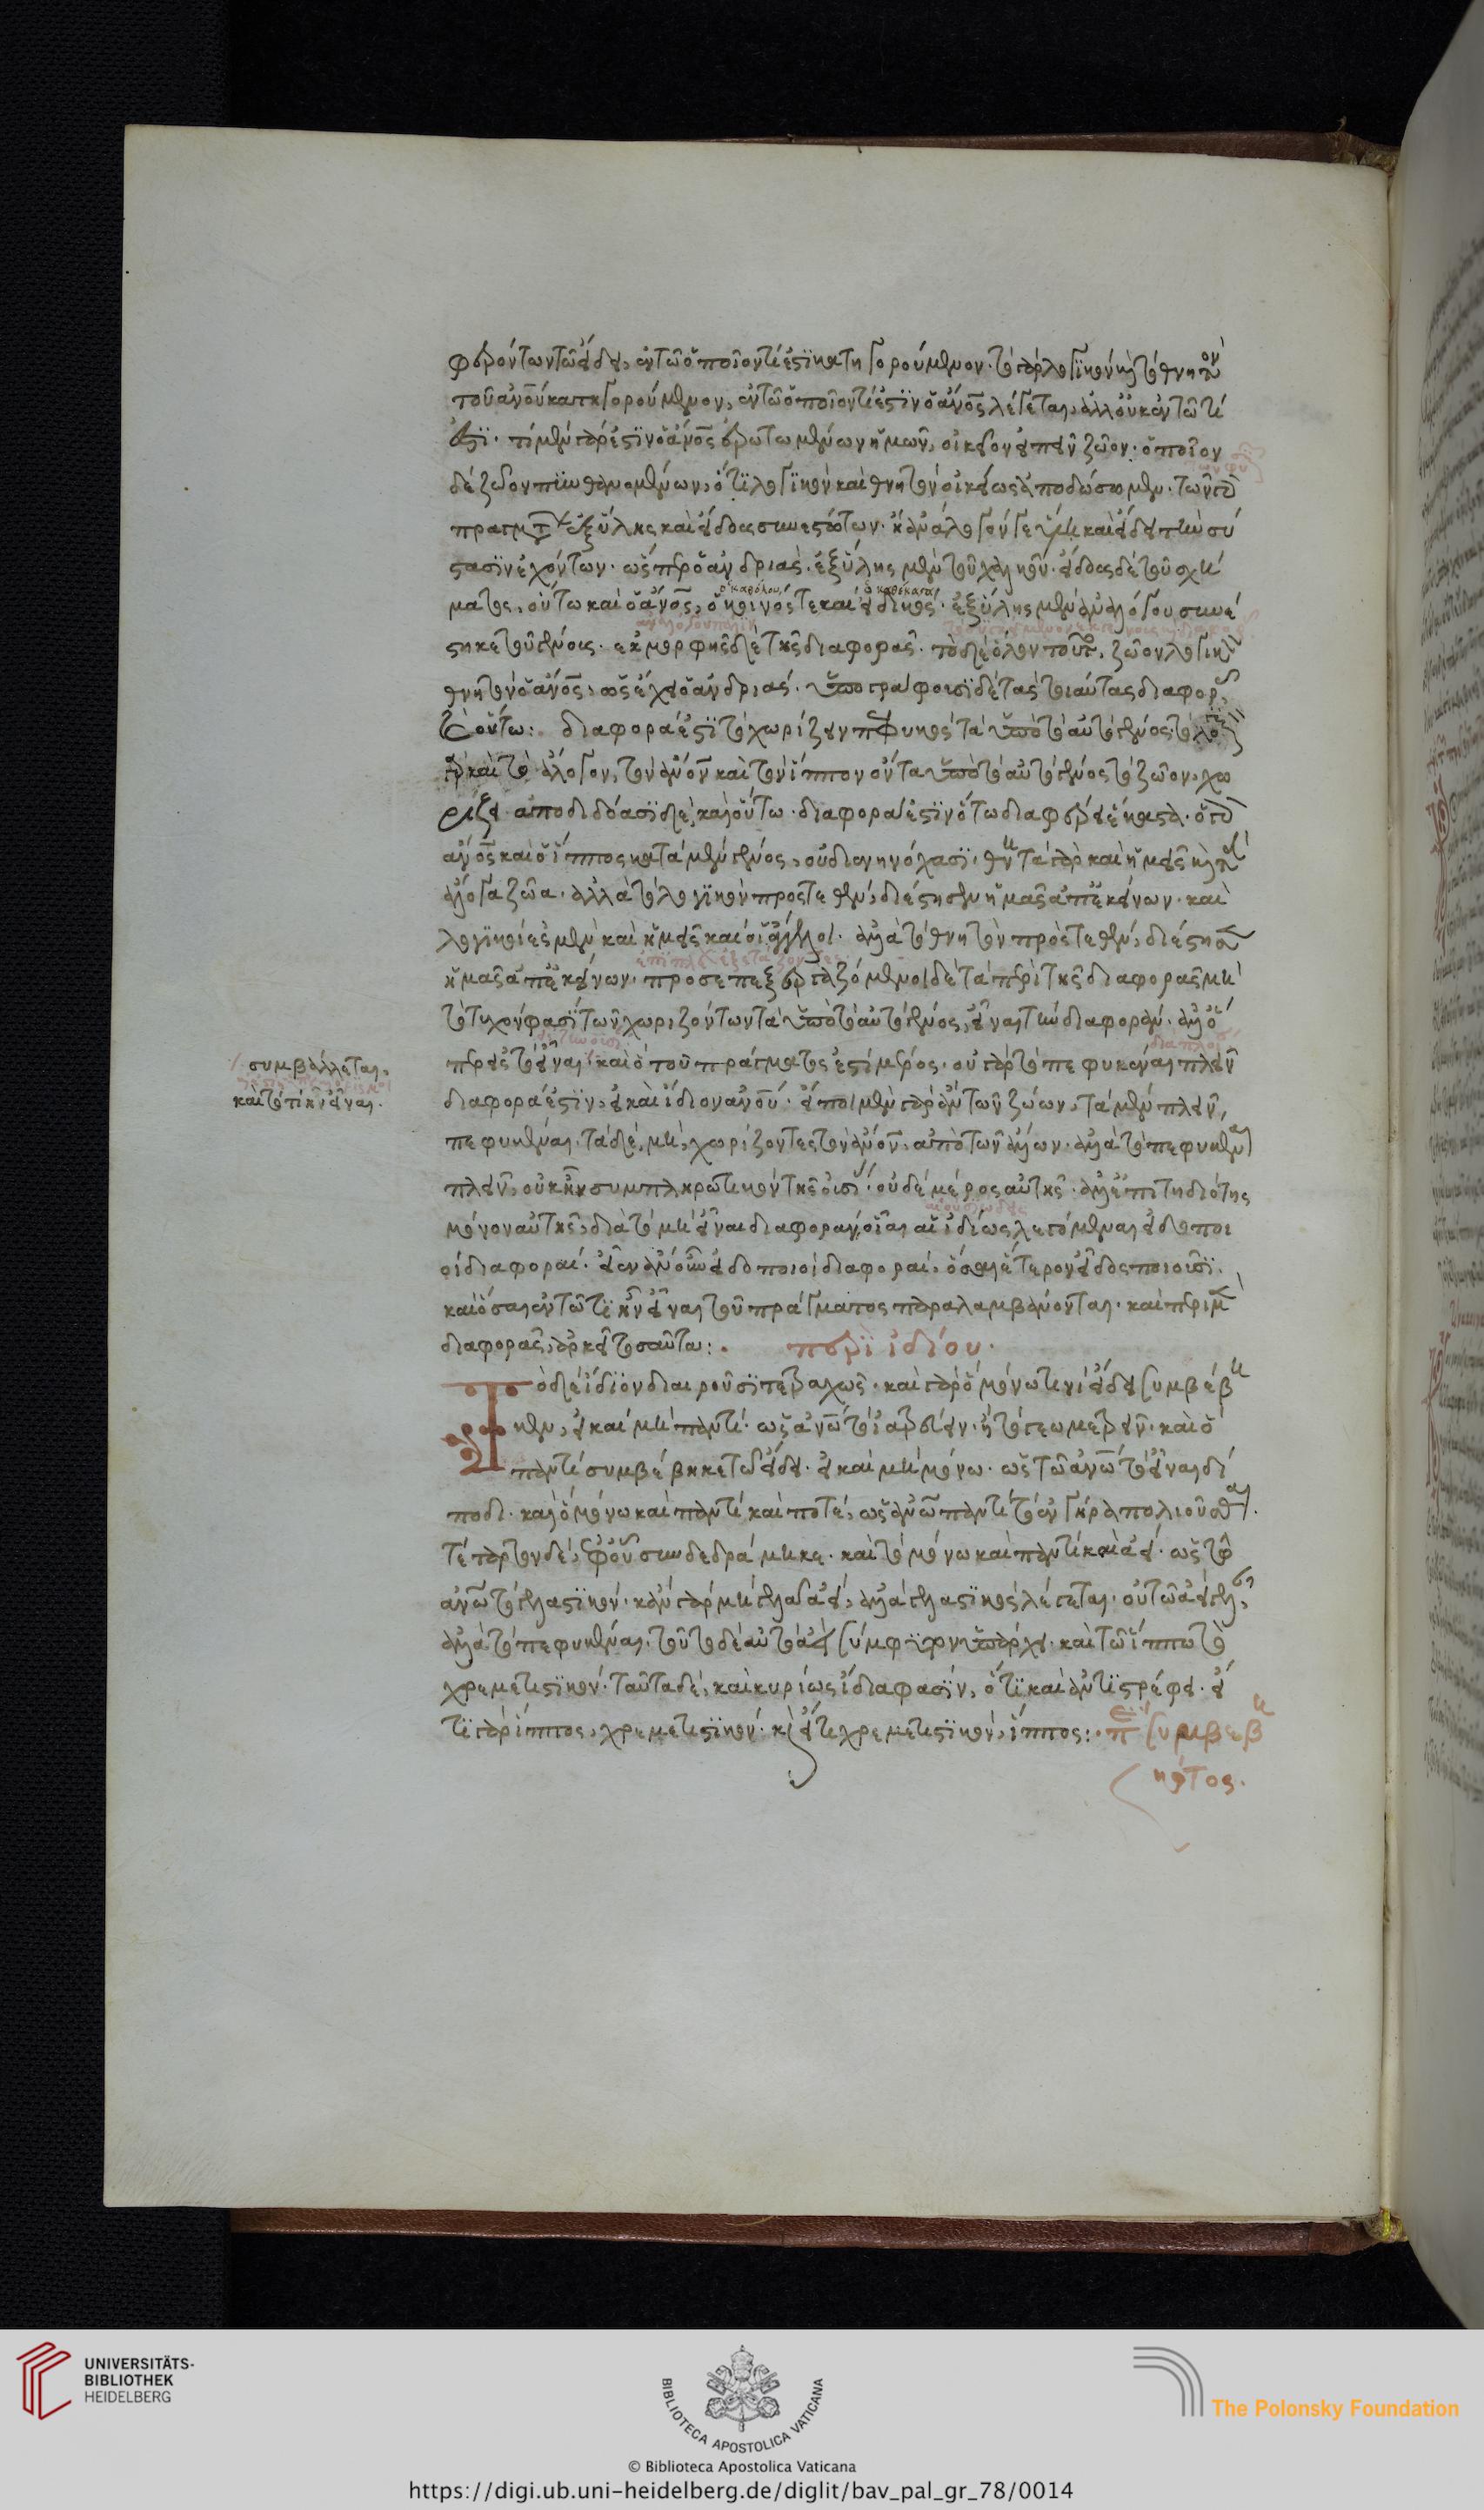 φερόντων τῶ εἴδει, ἐν τῶ ὁποῖον τί ἐστι κατηγορούμενον. τὸ γὰρ λογικὸν καὶ τὸ θνητὸν
τοῦ ἀνου κατηγορούμενον, ἐν τῶ ὁποῖον τί ἐστιν ὁ ἄνος λέγεται, ἀλλ' οὐκ ἐν τῶ τί
ἐστι. τί μὲν γάρ ἐστιν ὁ ἄνος ἐρωτωμένων ἡμῶν, οἰκεῖον εἰπεῖν ζῶον. ὁποῖον
δὲ ζῶον πυνθανομένων, ὅτι λογικὸν καὶ θνητὸν οἰκείως ἀποδώσομεν. τῶν γὰρ
πραγμάτων ἐξ ὕλης καὶ εἴδους συνεστώτων. ἢ ἀνάλογόν γε ὕλη καὶ εἴδει τὴν σύ
στασιν ἐχόντων. ὥσπερ ὁ ἀνδριὰς. ἐξ ὕλης μὲν τοῦ χαλκοῦ. εἴδους δὲ τοῦ σχή
ματος, οὕτω καὶ ὁ ἄνος, ὁ κοινός τε καὶ εἰδικός. ἐξ ὕλης μὲν ἀναλόγου συνέ
στηκε τοῦ γένους. ἐκ μορφῆς δὲ τῆς διαφορᾶς. τὸ δὲ ὅλον τοῦτο, ζῶον λογικὸν
θνητὸν ὁ ἄνος, ὡς ἐκεῖ ὁ ἀνδριάς. ὑπογράφουσι δὲ τὰς τοιαύτας διαφορὰς
καὶ οὕτω: διαφορά ἐστι τὸ χωρίζειν πεφυκὸς τὰ ὑπὸ τὸ αὐτὸ γένος. τὸ λογι
κὸν γὰρ καὶ τὸ ἄλογον, τὸν ἄνον καὶ τὸν ἵππον ὄντα ὑπὸ τὸ αὐτὸ γένος τὸ ζῶον, χω
ρίζει. ἀποδιδόασι δὲ καὶ οὕτω. διαφορά ἐστιν ὅτω διαφέρει ἕκαστα.
ἄνος καὶ ὁ ἵππος κατὰ μὲν γένος, οὐ διενηνόχασι. θνητὰ γὰρ καὶ ἡμεῖς καὶ τὰ
ἄλογα ζῶα. ἀλλὰ τὸ λογικὸν προστεθὲν, διέστησεν ἡμᾶς ἀπ' ἐκείνων. καὶ
λογικοί ἐσμεν καὶ ἡμεῖς καὶ οἱ ἄγγελοι. ἀλλὰ τὸ θνητὸν προστεθὲν, διέστησεν
ἡμᾶς ἀπ' ἐκείνων. προσεπεξεργαζόμενοι δὲ τὰ περὶ τῆς διαφορᾶς μὴ
τὸ τυχόν φασι τῶν χωριζόντων τὰ ὑπὸ τὸ αὐτὸ γένος, εἶναι τὴν διαφορὰν. ἀλλ' ὅ
περ εἰς τὸ εἶναι καὶ ὃ τοῦ πράγματός ἐστι μέρος. οὐ γὰρ τὸ πεφυκέναι πλεῖν
διαφορά ἐστιν, εἰ καὶ ἴδιον ἀνου. εἴποιμεν γὰρ ἂν τῶν ζώων, τὰ μὲν πλεῖν,
πεφυκέναι. τὰ δὲ μὴ, χωρίζοντες τὸν ἄνον, ἀπὸ τῶν ἄλλων. ἀλλὰ τὸ πεφυκέναι
πλεῖν, οὐκ ἦν συμπληρωτικὸν τῆς οὐσίας. οὐδὲ μέρος αὐτῆς. ἀλλ' ἐπιτηδειότης
μόνον αὐτῆς, διὰ τὸ μὴ εἶναι διαφορὰν, οἷαι αἱ ἰδίως λεγόμεναι εἰδοποι
οὶ διαφοραί. εἶεν ἂν οὖν εἰδοποιοὶ διαφοραὶ, ὅσαι ἕτερον εἶδος ποιοῦσι.
καὶ ὅσαι ἐν τῶ τί ἦν εἶναι τοῦ πράγματος παραλαμβάνονται. καὶ περὶ μὲν
διαφορᾶς, ἀρκεῖ τοσαῦτα:.   περὶ ἰδίου.
Τὸ δὲ ἴδιον διαιροῦσι τετραχῶς. καὶ γὰρ ὃ μόνω τινὶ εἴδει συμβέβη
κεν, εἰ καὶ μὴ παντὶ. ὡς ἀνω τὸ ἰατρεύειν. ἢ τὸ γεωμετρεῖν. καὶ ὃ
παντὶ συμβέβηκε τῶ εἴδει. εἰ καὶ μὴ μόνω. ὡς τῶ ἀνω τὸ εἶναι δί
ποδι. καὶ ὃ μόνω καὶ παντὶ καὶ ποτέ, ὡς ἀνω παντὶ τὸ ἐν γήρα πολιοῦσθαι.
τέταρτον δέ, ἐφ' οὗ συνδεδράμηκε. καὶ τὸ μόνω καὶ παντὶ καὶ ἀεί. ὡς τῶ
ἀνω τὸ γελαστικόν. κἂν γὰρ μὴ γελᾶ ἀεί, ἀλλὰ γελαστικὸς λέγεται. οὐ τῶ ἀεὶ γελᾶν,
ἀλλὰ τῶ πεφυκέναι. τοῦτο δὲ αὐτῶ ἀεὶ σύμφυτον ὑπάρχει. καὶ τῶ ἵππω τὸ
χρεμετιστικόν. ταῦτα δὲ, καὶ κυρίως ἴδια φασὶν, ὅτι καὶ ἀντιστρέφει. εἴ
τι γὰρ ἵππος, χρεμετιστικόν. καὶ εἴ τι χρεμετιστικὸν, ἵππος:. περὶ συμβεβη
κότος.
συμβάλλεται,
καὶ τὸ τί ἦν εἶναι.
ὁ καθόλου
UNIVERSITÄTS-
BIBLIOTHEK
HEIDELBERG
BIBLIOTECA APOSTOLICA VATICANA
The Polonsky Foundation
© Biblioteca Apostolica Vaticana
https://digi.ub.uni-heidelberg.de/diglit/bav_pal_gr_78/0014